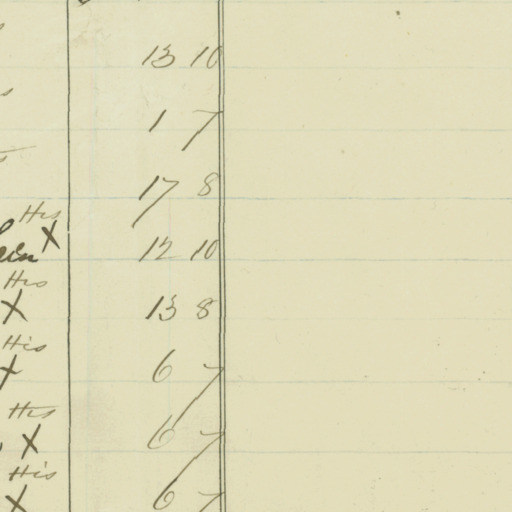 13 10
1 7
17 8
His
X
12 10
His
X 13 8
His
X 6 7
His
X 6 7
His
X 6 7